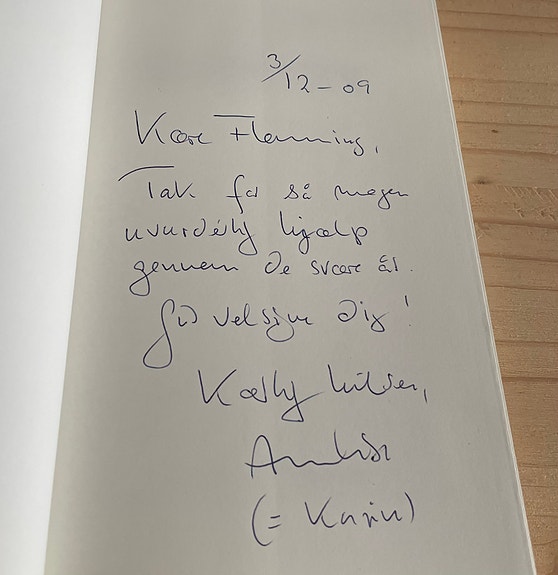 3/12-09
Kære Flemming,
Tak for så megen
uvurdérlig hjælp
gennem de svære år.
Gud velsigne dig!
Kærlig hilsen,
(= Karin)